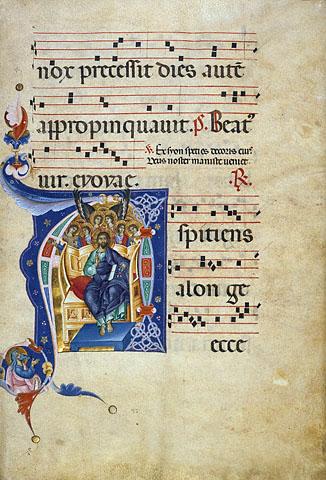 nox precessit dies autē
appropinquauit. p̄. Beatꝰ
℣. Ex syon species decoris eiuſ
Deus noster manifeste ueniet.
uir. euouae. R.
Aspitiens
alon ge
ecce